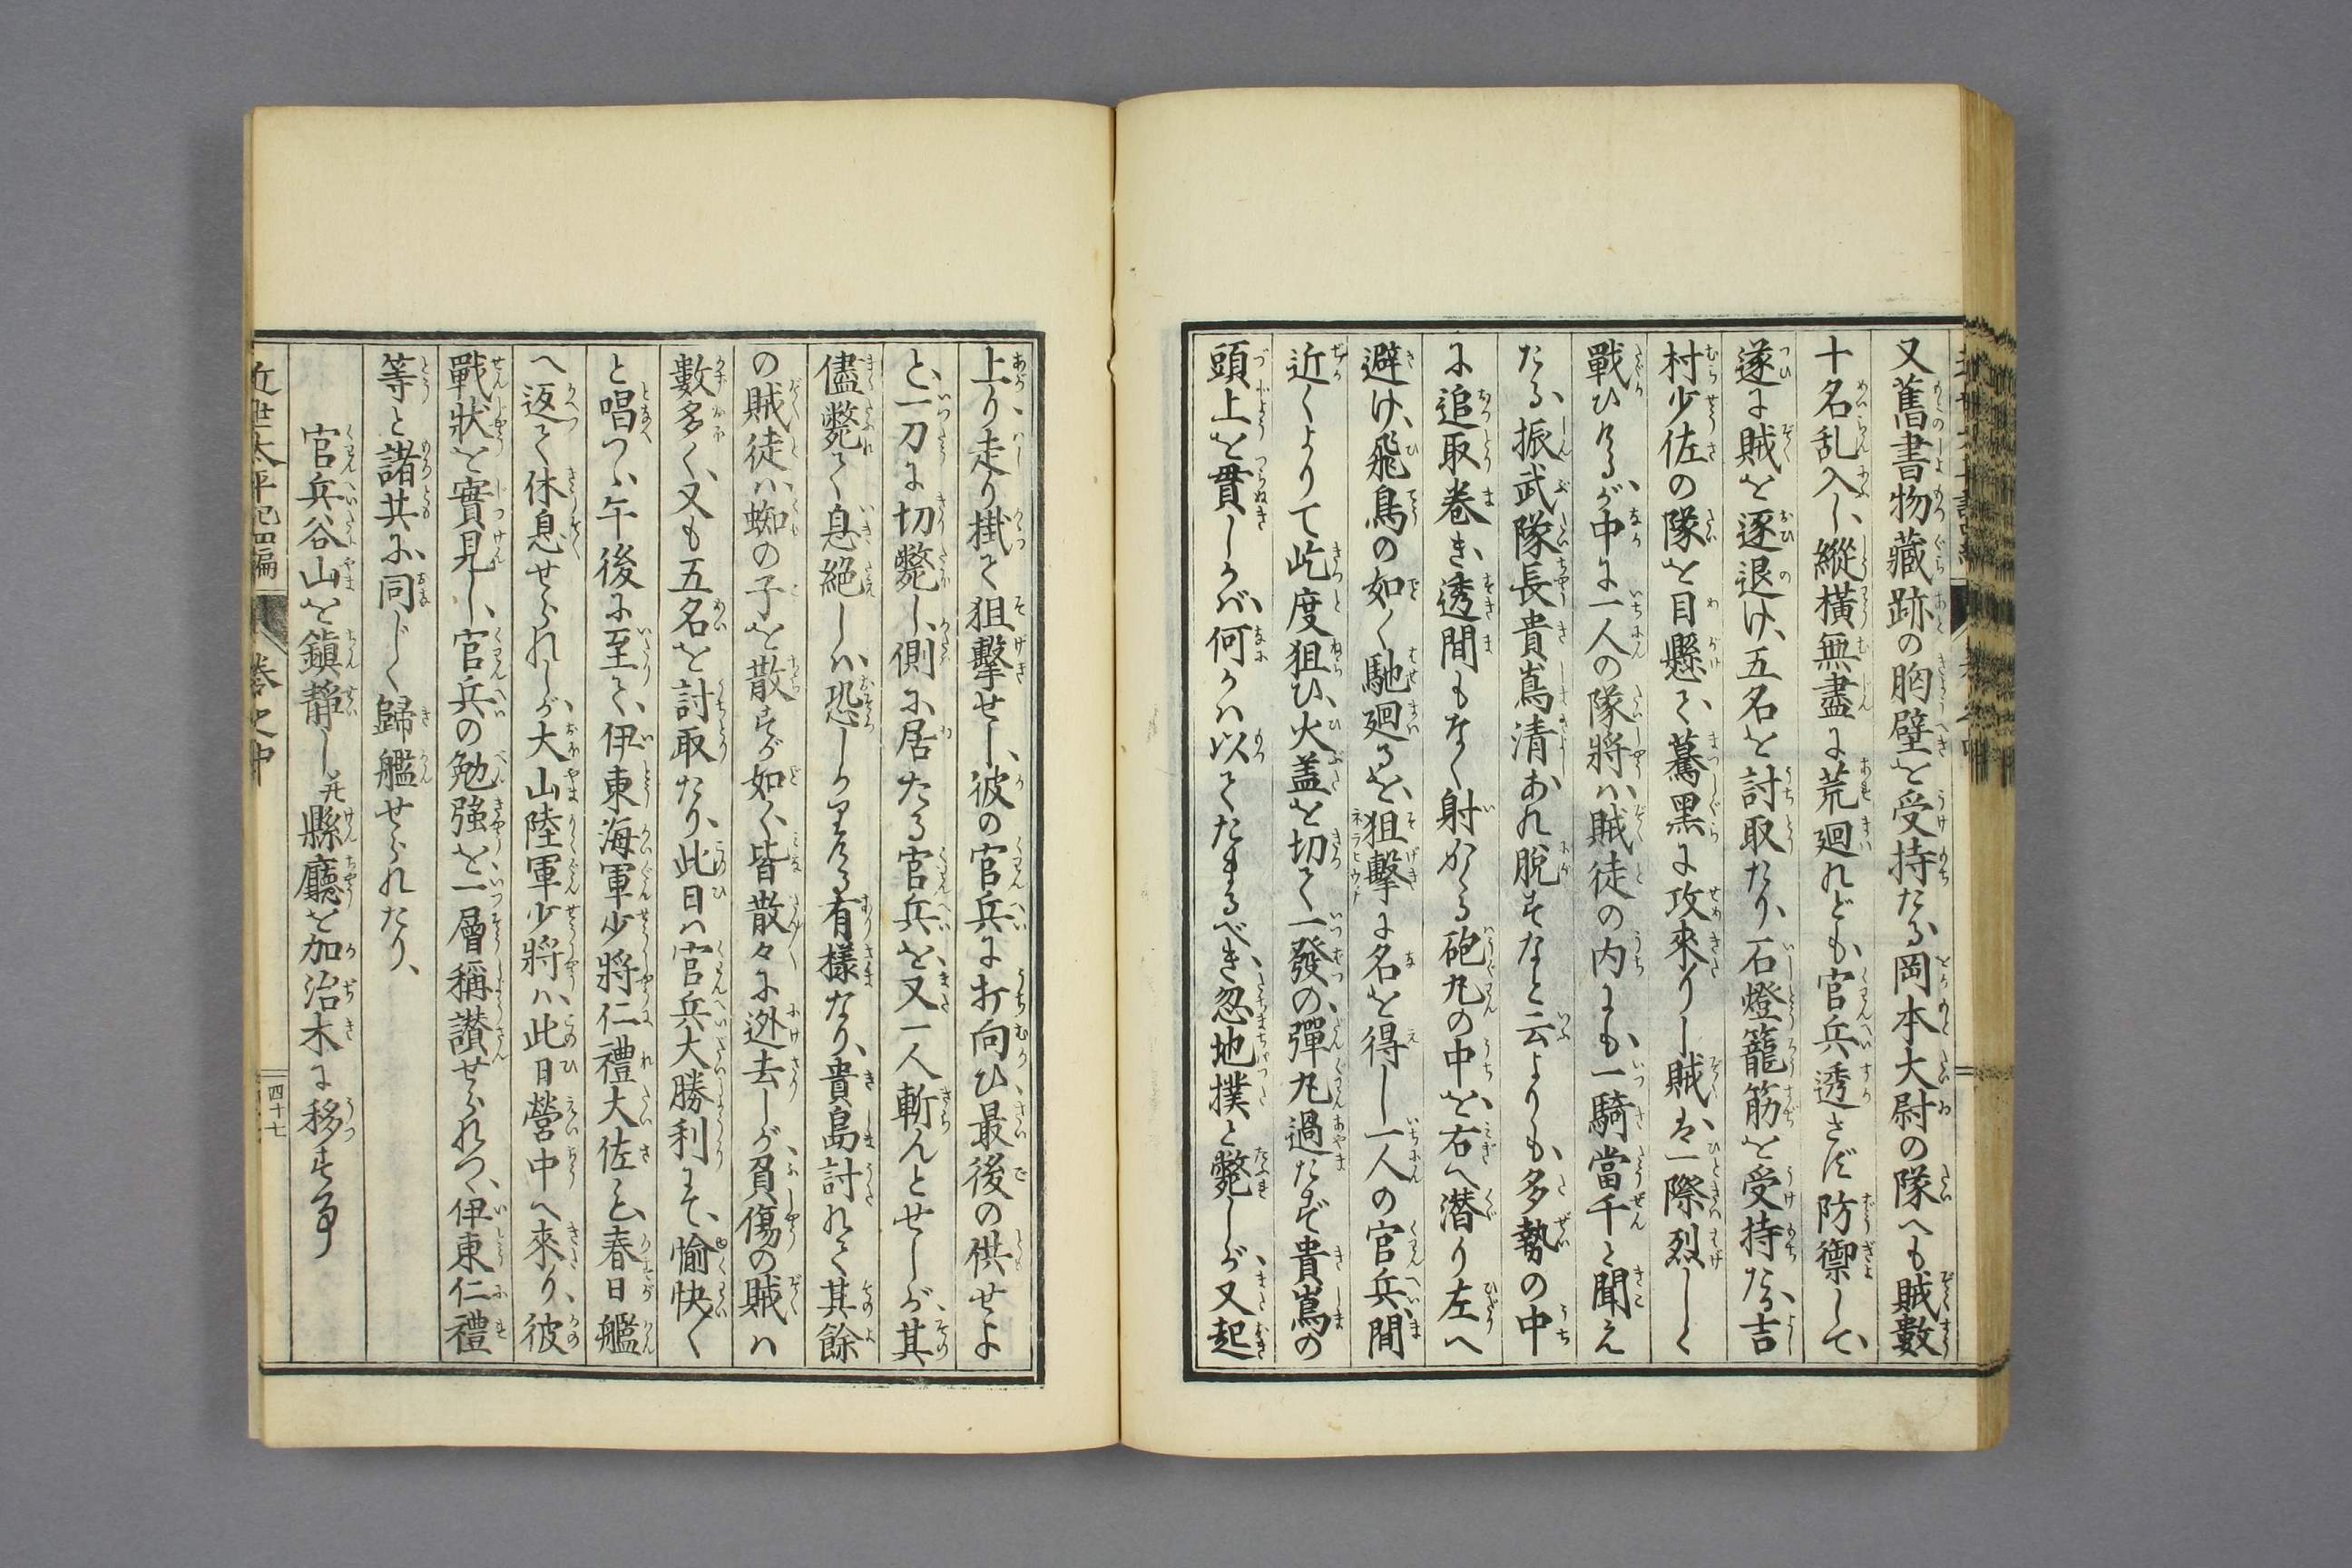 又舊書物藏跡の胸壁を受持たる岡本大尉の隊へも賊數
十名乱入し、縱橫無盡に荒廻れども、官兵透さず防禦して、
遂に賊を逐退け、五名を討取たり、石燈籠筋を受持たる、吉
村少佐の隊を目懸て、驀黑に攻來りし賊は、一際烈しく
戰ひけるが、中に一人の隊將は、賊徒の内にも、一騎當千と聞え
たる、振武隊長貴嶌清あれ脱すなと云よりも、多勢の中
に追取巻き、透間もなく射かくる砲丸の中を、右へ潜り左へ
避け、飛鳥の如く馳廻るを、狙擊に名を得し一人の官兵、間
近くよりて屹度狙ひ、火盖を切て一發の、彈丸過たず貴嶌の
頭上を貫しかバ、何かハ以てたまるべき、忽地撲と斃しが、又起
上り、走り掛て狙擊せし、彼の官兵に打向ひ、最後の供せよ
と、一刀に切斃し、側に居たる官兵を、又一人斬んとせしが、其
儘斃て息絕しハ、恐しかりける有樣なり、貴島討れて其餘
の賊徒ハ、蜘の子を散すが如く、皆散々に迯去しが、負傷の賊ハ
數多く、又も五名を討取たり、此日ハ官兵大勝利にて、愉快〱
と唱つゝ、午後に至て、伊東海軍少將仁禮大佐と、春日艦
へ返て休息せられしが、大山陸軍少將ハ、此日營中へ來り、彼
戰狀を實見し、官兵の勉強を、一層稱讃せられつゝ、伊東仁禮
等と諸共に、同じく歸艦せられたり、
官兵谷山を鎭靜し并縣廳を加治木に移す事
近世太平記四編
巻之中
四十七